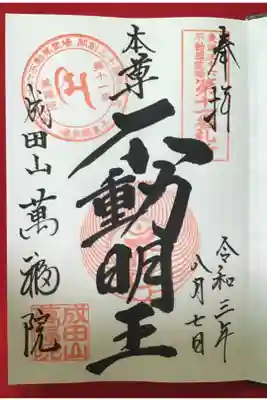 奉拝
第十一札
令和三年
八月七日
本尊
不動明王
成田山 萬福院
成田山